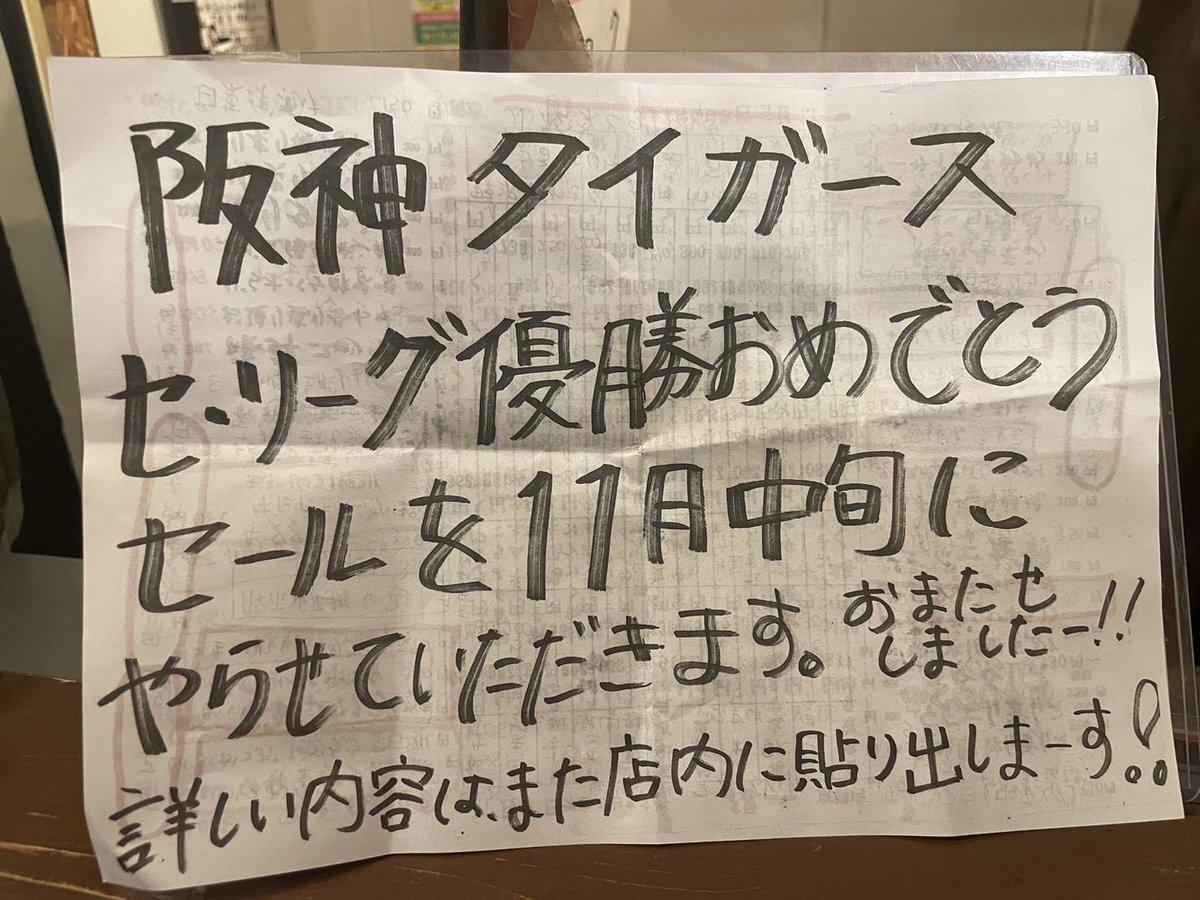 阪神タイガース
セ・リーグ優勝おめでとう
セールを11月中旬に
やらせていただきます。
おまたせ
しましたー!!
詳しい内容は、また店内に貼り出しまーす!!